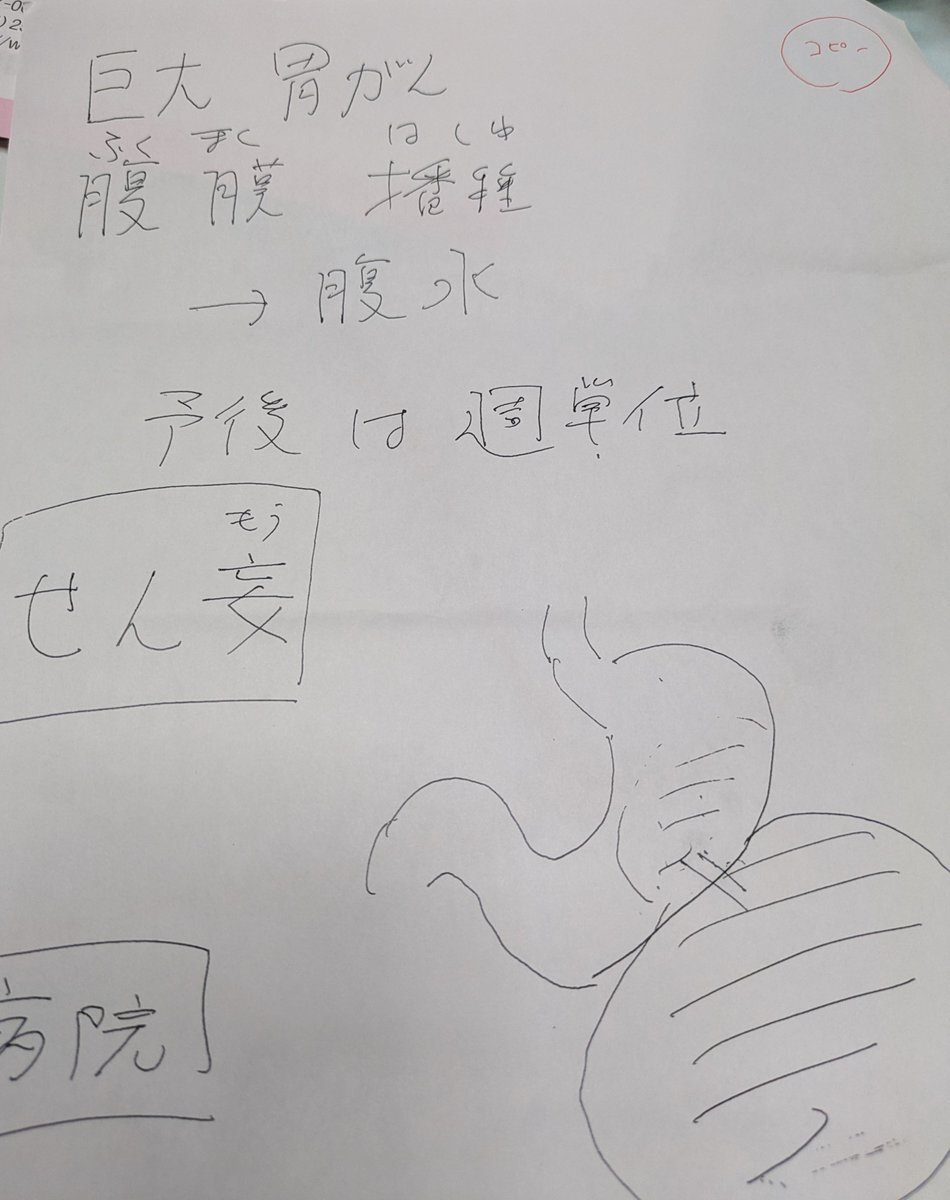 コピー
巨大 胃がん
ふく まく はしゅ
腹 膜 播種
→ 腹水
予後は週単位
もう
せん妄
病院